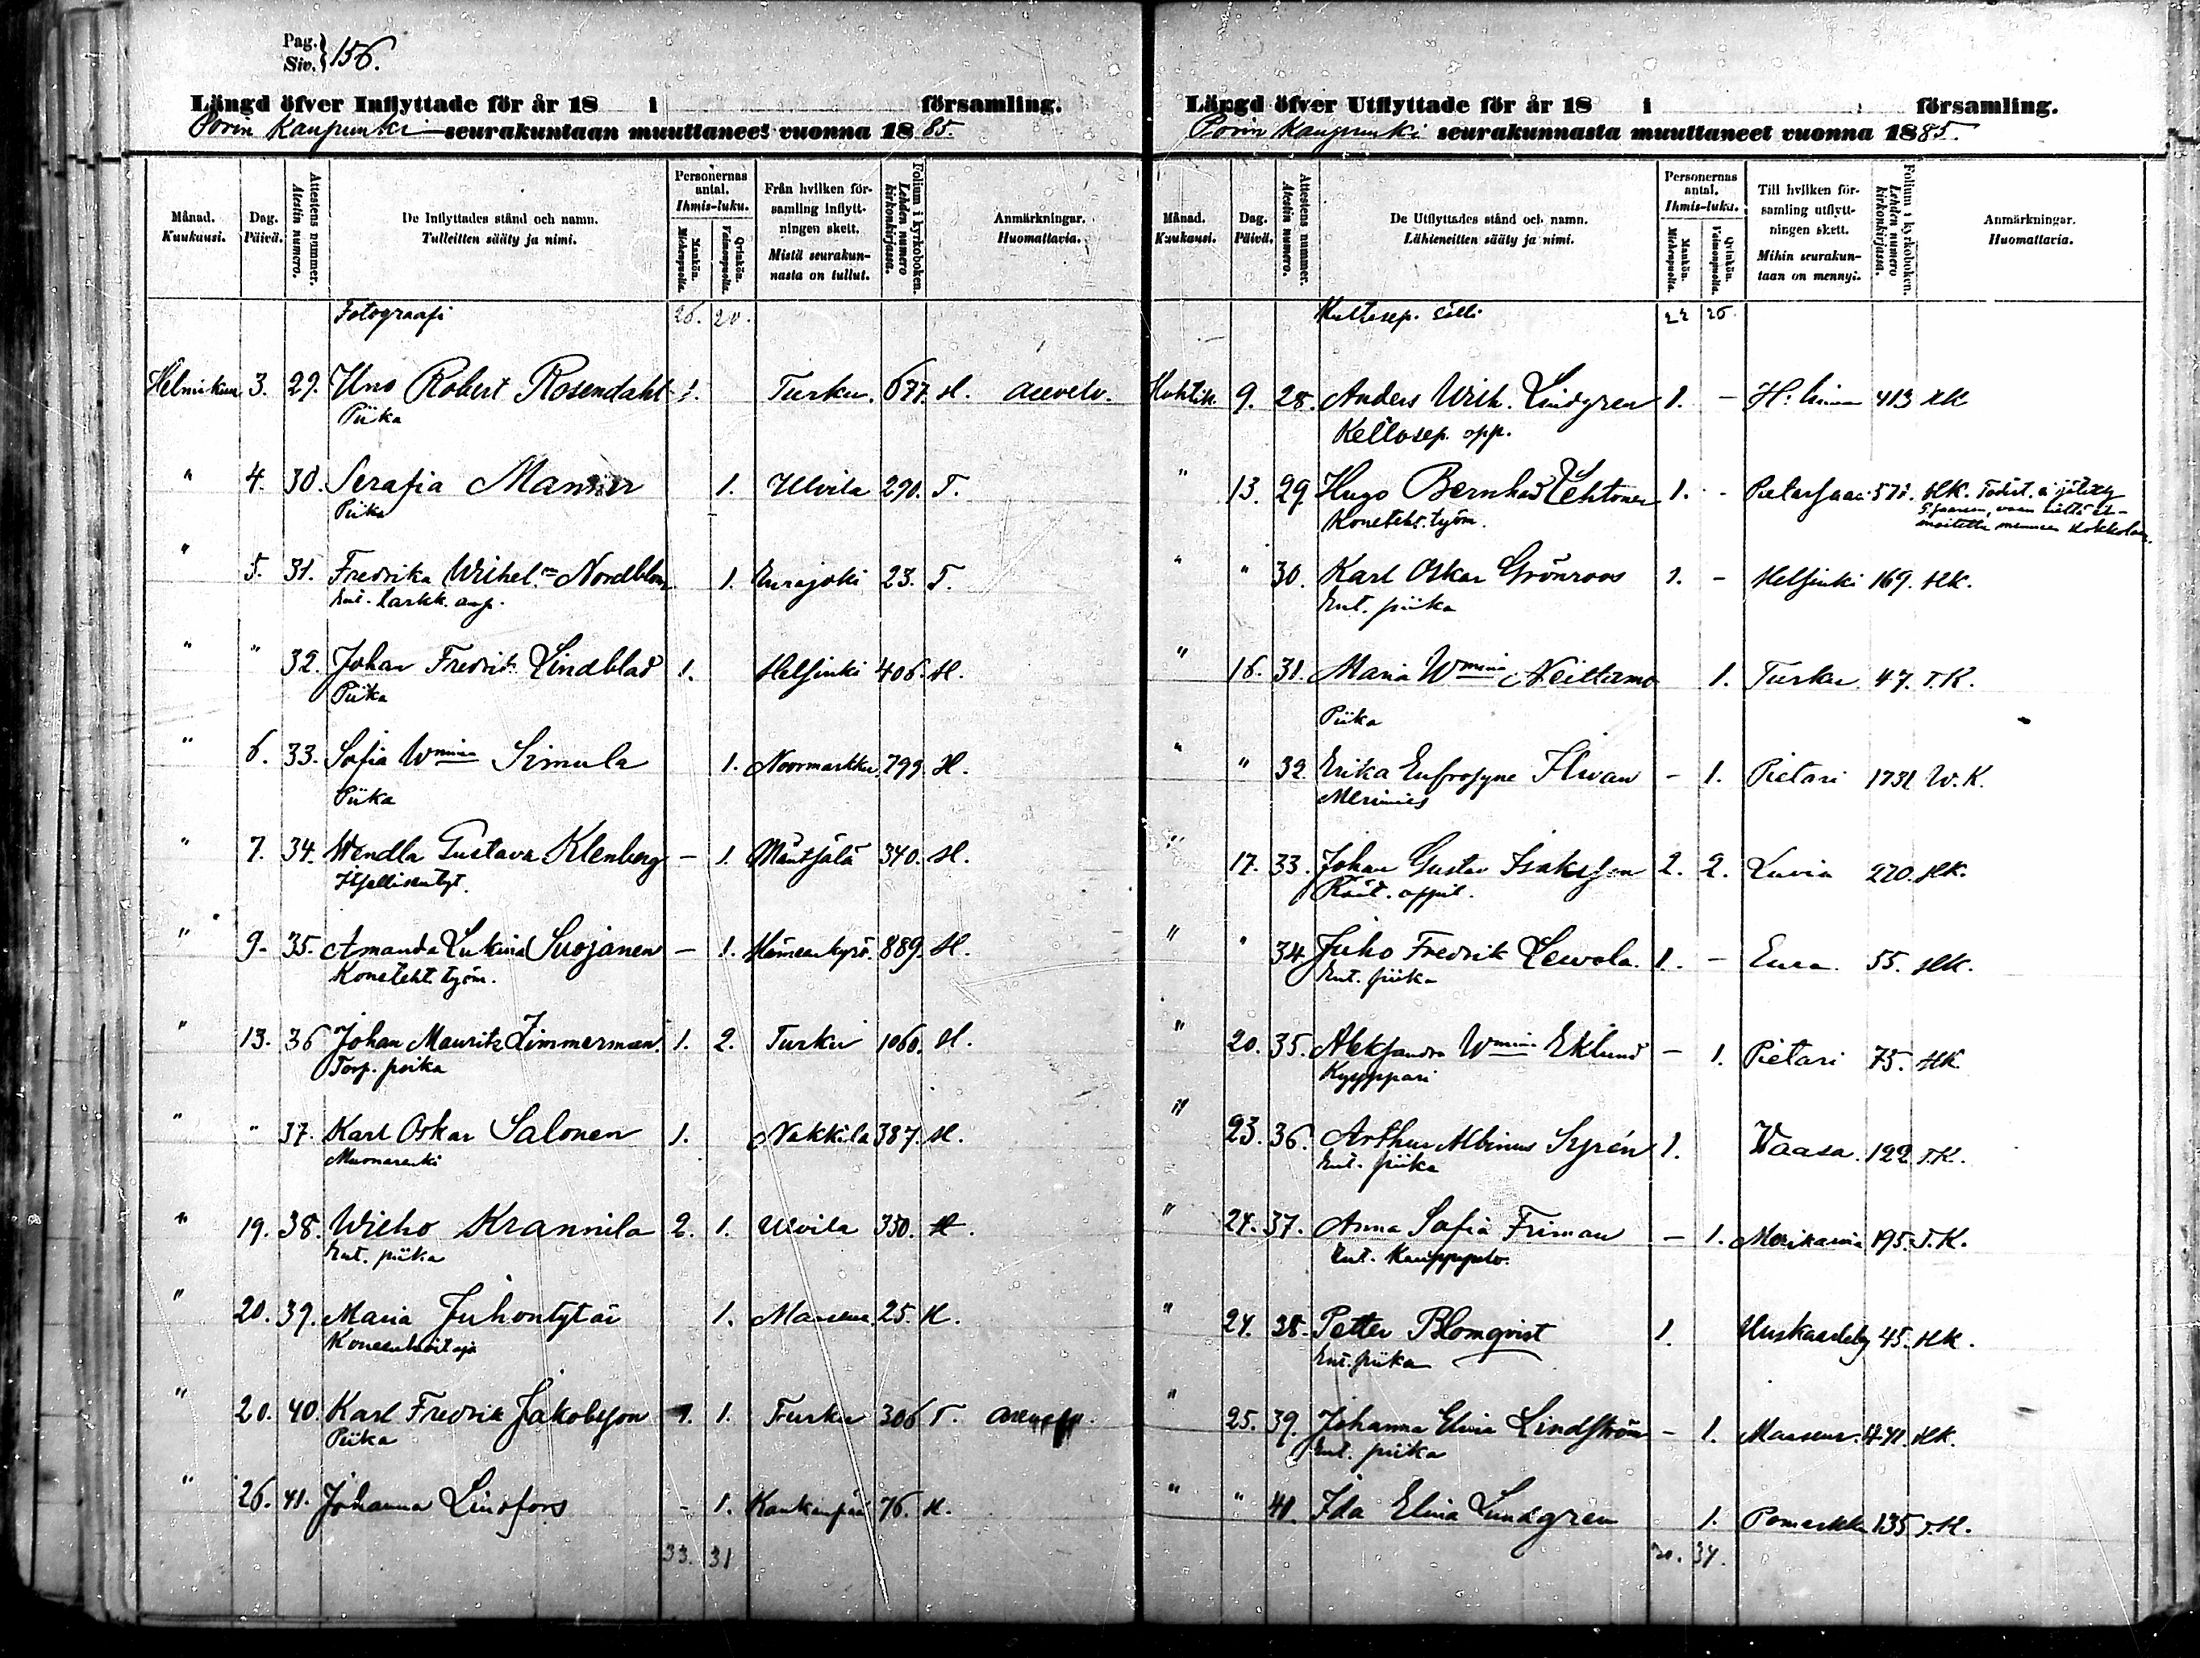 Pag.
Siv. 156.
Längd öfver Inflyttade för år 18 i församling.
Porin Kaupunki seurakuntaan muuttaneet vuonna 1885.
Månad. Kuukausi.
Dag. Päivä.
Attestens nummer. Atestin numero.
De Inflyttades stånd och namn. Tulleitten sääty ja nimi.
Personernas antal. Ihmis-luku.
Mankön. Miehenpuolia.
Qvinkön. Vaimonpuolia.
Från hvilken församling inflyttningen skett. Mistä seurakunnasta on tullut.
Folium i kyrkoboken. Lehden numero kirkonkirjassa.
Anmärkningar. Huomattavia.
Fotograafi 26. 20.
Helmikuu 3. 29. Uno Robert Rosendahl 1. Turku. 677. H.
Piika
" 4. 30. Serafia 1. Ulvila 290. T.
Piika
" 5. 31. Fredrika Wilhel. Nordblom 1. Eurajoki 23. T.
Ent.
" " 32. Johan Fredrik Lindblad 1. Helsinki 406. H.
Piika
" 6. 33. Sofia Wmina Simula 1. Noormarkku 799. H.
Piika
" 7. 34. Wendla Gustava Klenberg – 1. Mäntsälä 340. H.
Itsellisentyt.
" 9. 35. Amanda Lukina Suojanen – 1. Hämeenkyrö. 889. H.
Koneteht. työm.
" 13. 36 Johan Mauritz Zimmerman. 1. 2. Turku 1060. H.
Torp. poika
" " 37. Karl Oskar Salonen 1. Nakkila 387. H.
Muonarenki
" 19. 38. Wieho Krannila 2. 1. Ulvila 350. H.
Ent. piika
" 20. 39. Maria Juhontytär 1. Maaseur. 25. H.
Koneenhoitaja
" 20. 40. Karl Fredrik Jakobsson 1. 1. Turku 306 T.
Piika
" 26. 41. Johanna Lindfors – 1. Kankaanpää 76. H.
33. 31
Längd öfver Utflyttade för år 18 i församling.
Porin Kaupunki seurakunnasta muuttaneet vuonna 1885.
Månad. Kuukausi.
Dag. Päivä.
Attestens nummer. Atestin numero.
De Utflyttades stånd och namn. Lähteneitten sääty ja nimi.
Personernas antal. Ihmis-luku.
Mankön. Miehenpuolia.
Qvinkön. Vaimonpuolia.
Till hvilken församling utflyttningen skett. Mihin seurakuntaan on mennyt.
Folium i kyrkoboken. Lehden numero kirkonkirjassa.
Anmärkningar. Huomattavia.
Kultasep. sälli 22 26.
Huhtik. 9. 28. Anders Wilh. Lindgren 1. – 413 HK
Kellosep. opp.
" 13. 29. Hugo Bernhard Lehtonen 1. – Pietarsaari 571. HK.
Koneteht. työm.
" " 30. Karl Oskar Grönroos 1. – Helsinki 169. HK.
Ent. piika
" 16. 31. Maria Wmina Neittamo 1. Turku 47. T.K.
Piika
" " 32. Erika Eufrosyne Ilwan – 1. Pietari 1731 W.K.
Merimies
" 17. 33. Johan Gustav Isaksson 2. 2. Luvia 270. HK.
Räät. oppil.
" " 34 Juho Fredrik Lewola. 1. – Eura. 55. HK.
Ent. piika
" 20. 35. Aleksandra Wmina Eklund – 1. Pietari 75. HK
Kyyppari
" 23. 36. Arthur Albinus Syrén 1. Waasa. 122 T.K.
Ent. piika
" 24. 37. Anna Sofia Friman – 1. Merikarvia 195. T.K.
Ent. Kauppapalv.
" 24. 38. Petter Blomqvist 1. Uuskaarlebyy 45. HK.
Ent. piika
" 25. 39. Johanna Elvira Lindström – 1. Maaseur. HK.
Ent. piika
" " 41. Ida Elina Lundgren 1. Pomarkku 135 T.H.
34.